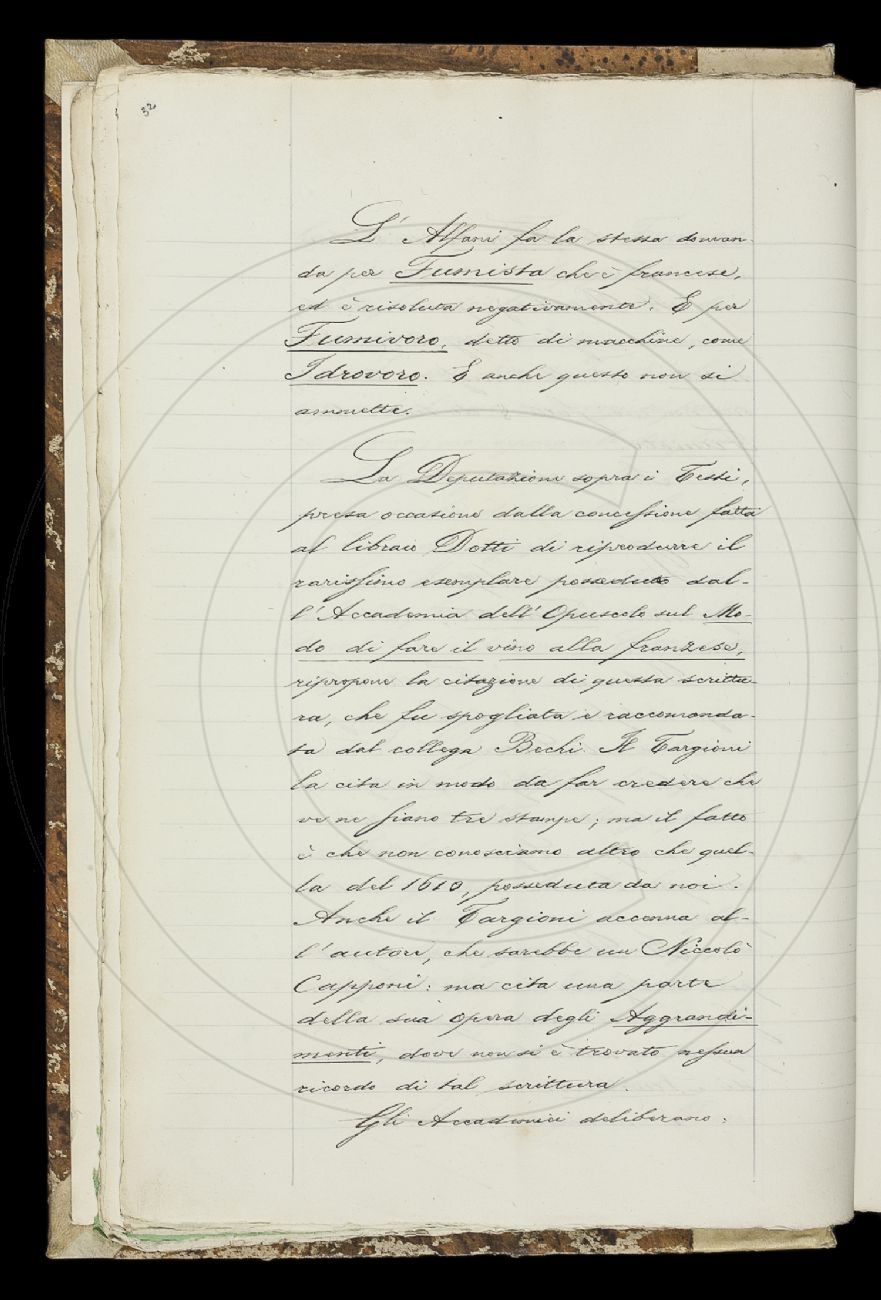 32
L' Alfani fa la stessa doman-
da per Fumista che è francese,
ed è risoluta negativamente. E per
Fumivoro, detto di macchine, come
Idrovoro. E anche questo non si
ammette.
La Deputazione sopra i Testi,
presa occasione dalla concessione fatta
al libraio Dotti di riprodurre il
rarissimo esemplare posseduto dal-
l'Accademia dell'Opuscolo sul Mo-
do di fare il vino alla franzese,
ripropone la citazione di questa scrittu-
ra, che fu spogliata e raccomanda-
ta dal collega Bechi. Il Targioni
la cita in modo da far credere che
ve ne siano tre stampe; ma il fatto
è che non conosciamo altro che quel-
la del 1610, posseduta da noi.
Anche il Targioni accenna al-
l'autore, che sarebbe un Niccolò
Capponi: ma cita una parte
della sua opera degli Aggrandi-
menti, dove non si è trovato nessun
ricordo di tal scrittura.
Gli Accademici deliberano: